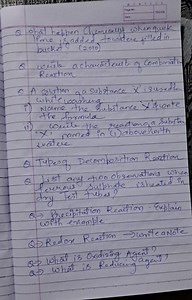 Q What happen Chemically when quick
lime is added to water filled in
bucket?
Q write a characteristics of Combination
Reaction
Q A solution of a substance 'X' is used for
white washing
i) Name the Substance 'X' & write
the formula.
ii) Write the reaction of a substance
'X' named in (i) above with
water
Q Types Decomposition Reaction
Q List any two observations when
Ferrous Sulphate is heated in
dry test tubes?
Q Precipitation Reaction - Explain
with example
Q Redox Reaction - Short note
Q What is Oxidising Agent?
Q What is Reducing agent?